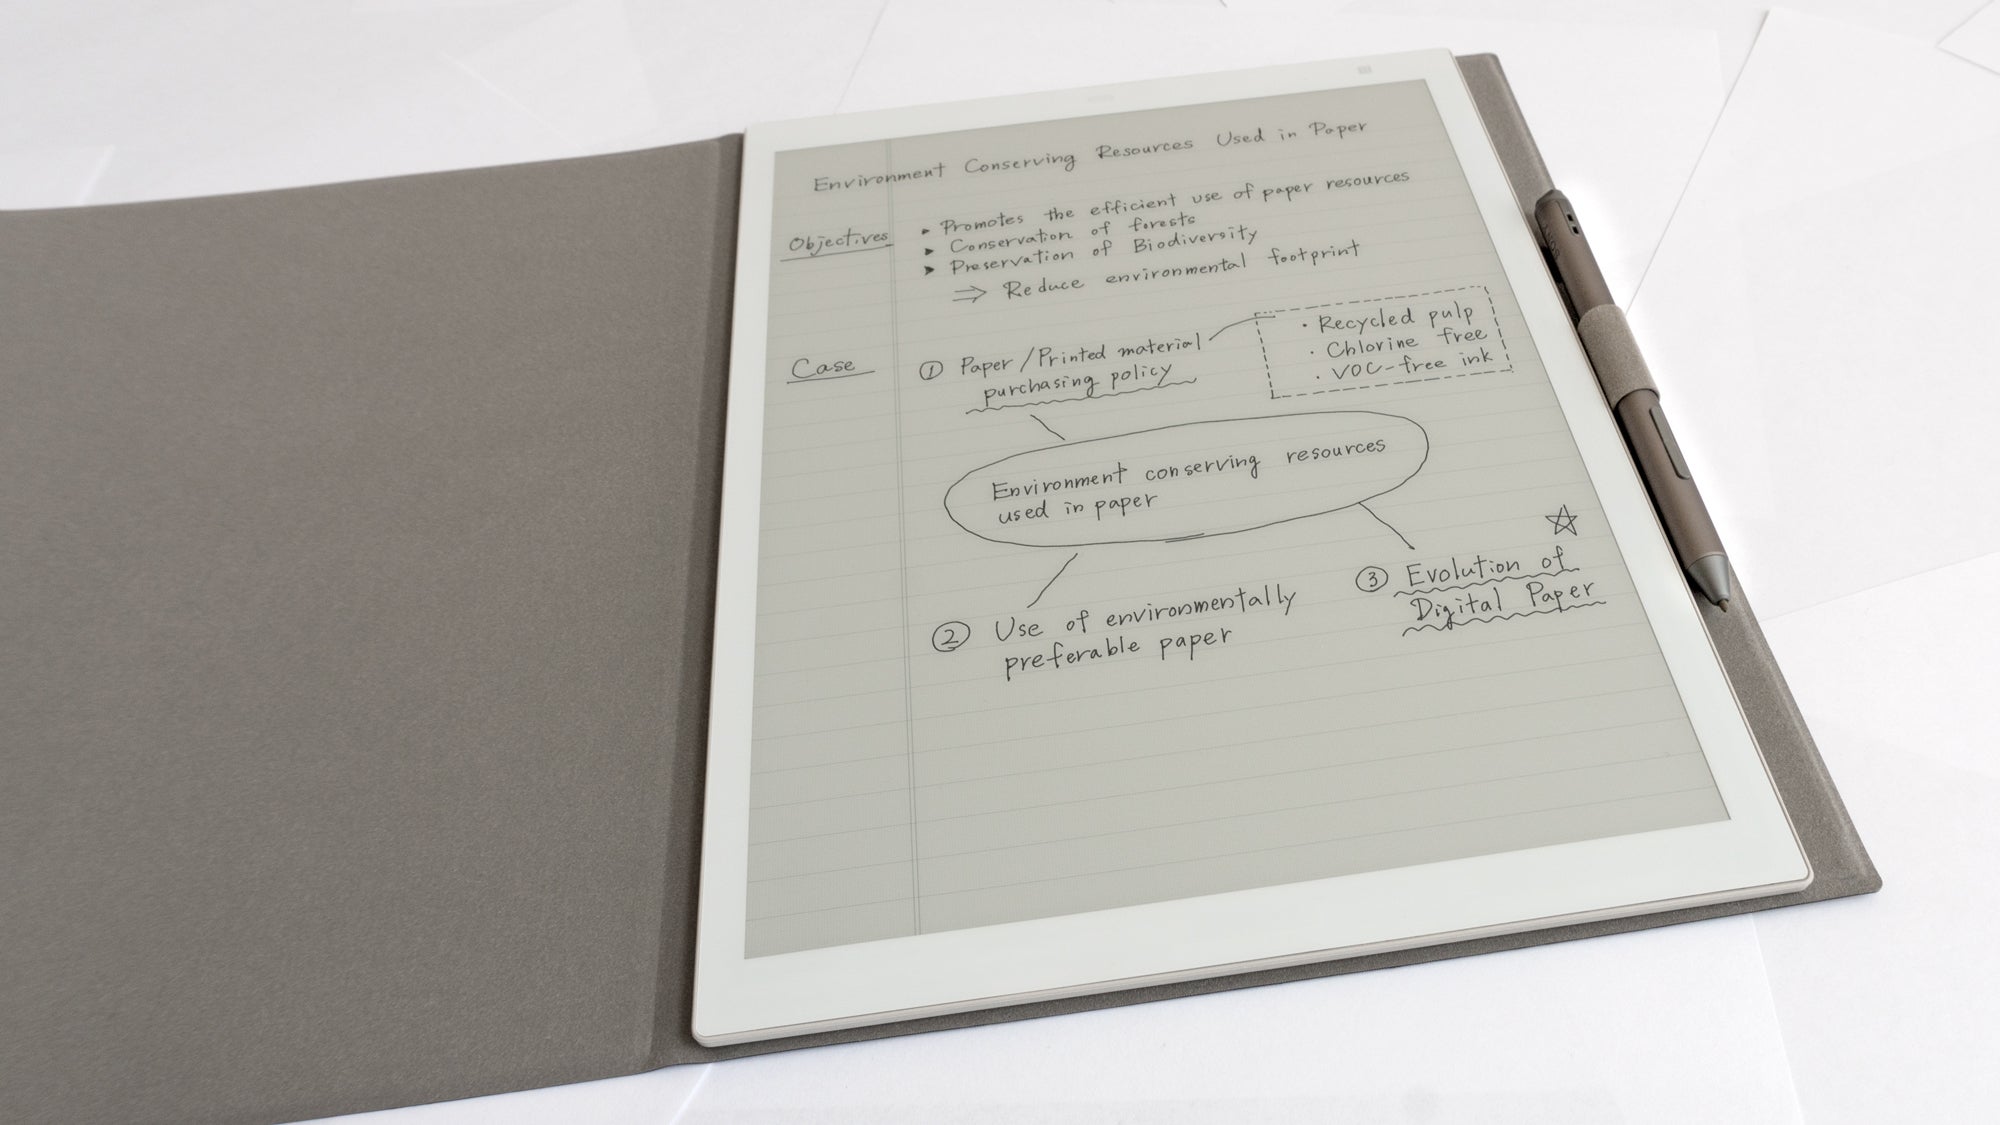 Environment Conserving Resources Used in Paper
Objectives
▸ Promotes the efficient use of paper resources
▸ Conservation of forests
▸ Preservation of Biodiversity
⇒ Reduce environmental footprint
Case
① Paper/Printed material
purchasing policy
・Recycled pulp
・Chlorine free
・VOC-free ink
Environment conserving resources
used in paper
② Use of environmentally
preferable paper
☆
③ Evolution of
Digital Paper